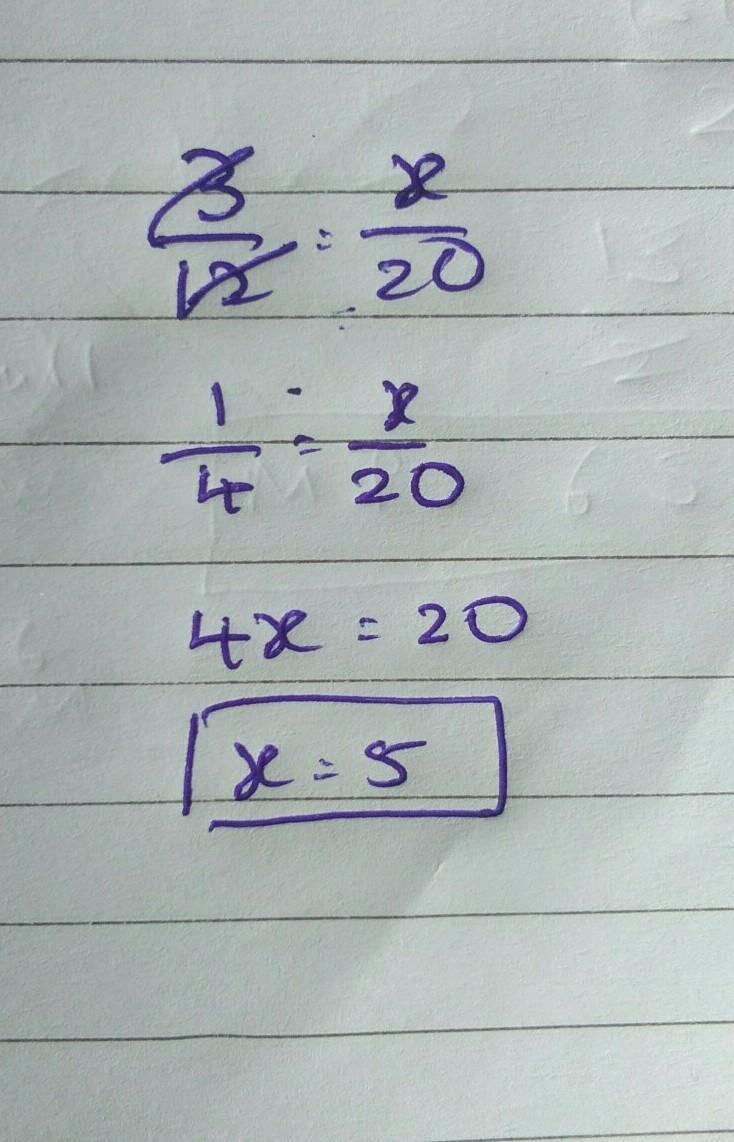 3/12 = x/20
1/4 = x/20
4x = 20
x = 5